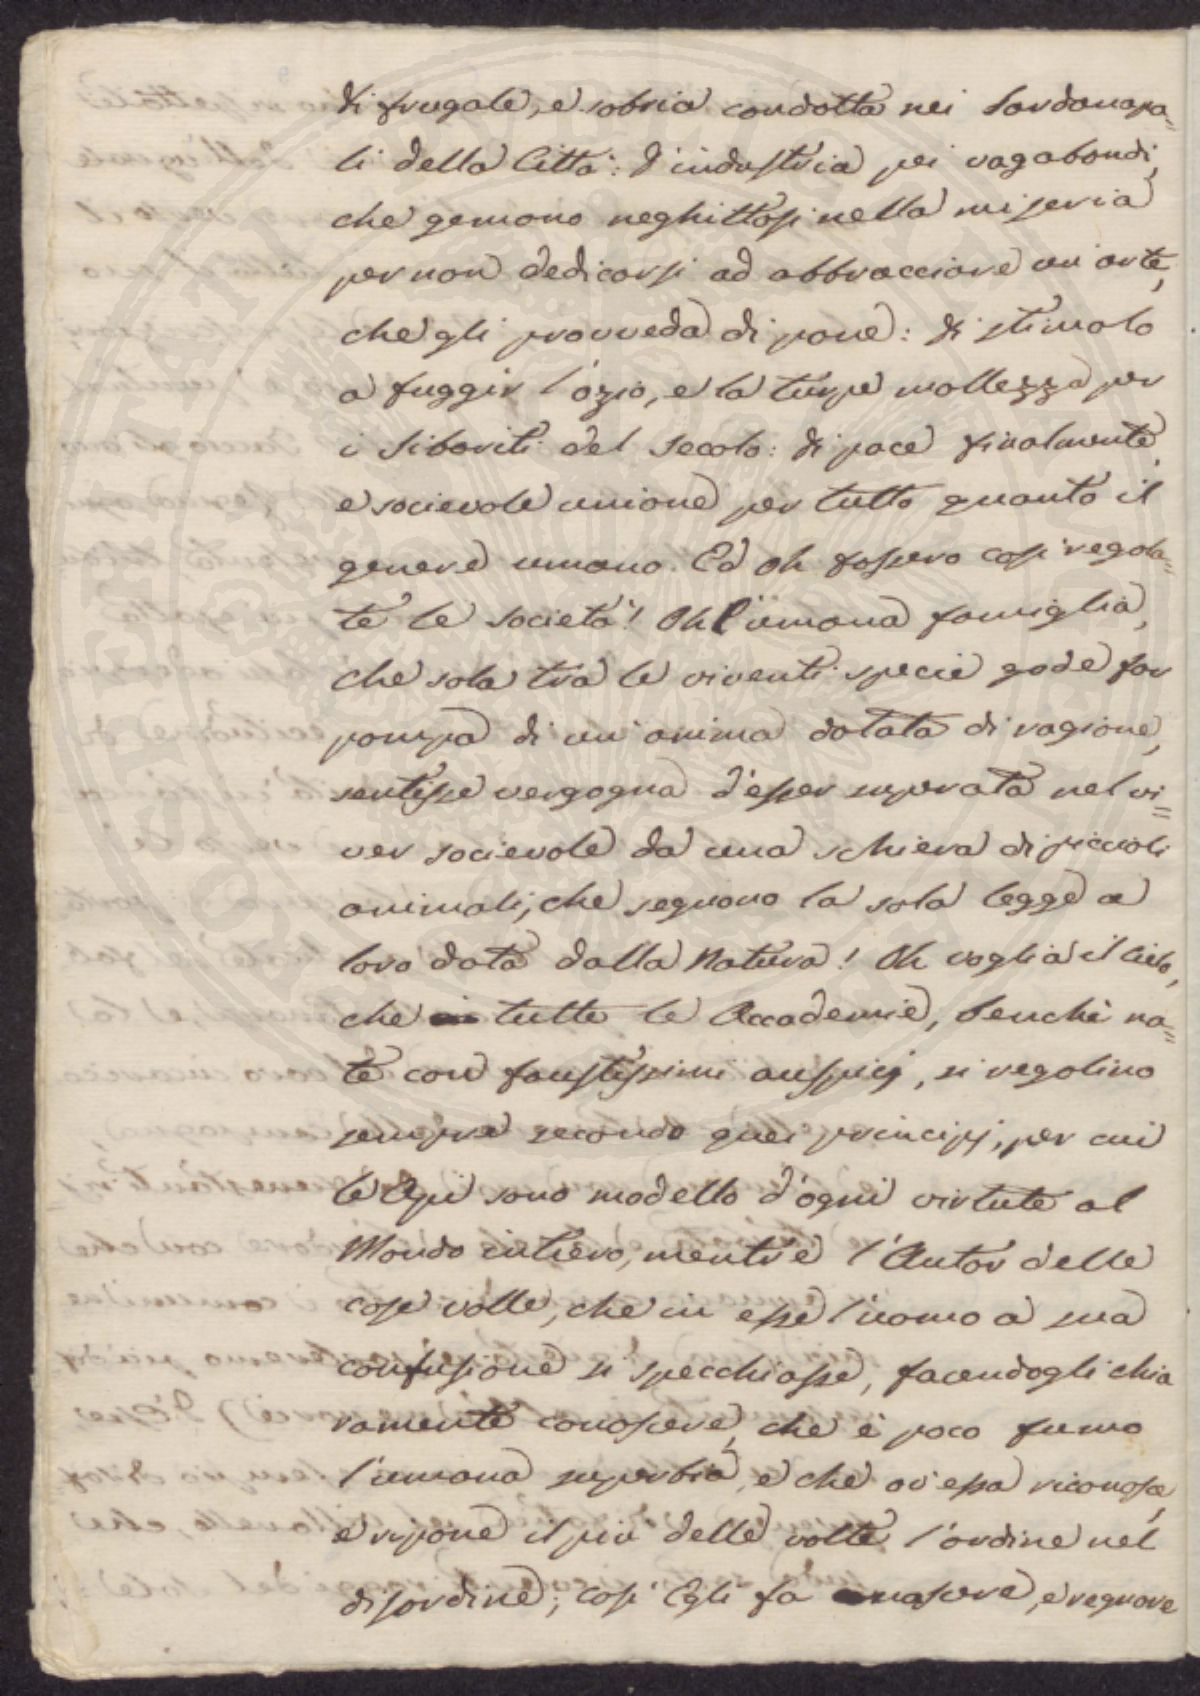 di frugale, e sobria condotta nei Sardanapa=
li della Città: d'industria pei vagabondi,
che gemono neghittosi nella miseria
per non dedicarsi ad abbracciare un'arte,
che gli provveda di pane: di stimolo
a fuggir l'ozio, e la turpe mollezza per
i Sibariti del secolo: di pace finalmente,
e socievole unione per tutto quanto il
genere umano. Ed oh fossero così regola=
te le società! Oh l'umana famiglia,
che sola tra le viventi specie gode far
pompa di un'anima dotata di ragione,
sentisse vergogna d'esser superata nel vi=
ver socievole da una schiera di piccioli
animali, che seguono la sola legge a
loro data dalla Natura! Oh voglia il Cielo,
che tutte le Accademie, benchè na=
te con faustissimi auspicj, si regolino
sempre secondo quei principj, per cui
le Api sono modello d'ogni virtute al
Mondo intiero, mentre l'Autor delle
cose volle, che in esse l'uomo a sua
confusione si specchiasse, facendogli chia
ramente conoscere, che è poco fumo
l'umana superbia, e che ov'essa riconosce,
e ripone il più delle volte l'ordine nel
disordine; così Egli fa nascere, e regnare